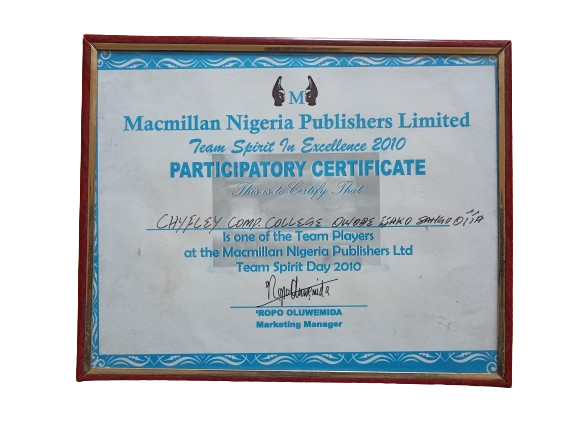 M
Macmillan Nigeria Publishers Limited
Team Spirit In Excellence 2010
PARTICIPATORY CERTIFICATE
This is to Certify That
CHYFLEY COMP. COLLEGE OWODE IJAKO SANGO OTTA
Is one of the Team Players
at the Macmillan Nigeria Publishers Ltd
Team Spirit Day 2010
'ROPO OLUWEMIDA
Marketing Manager